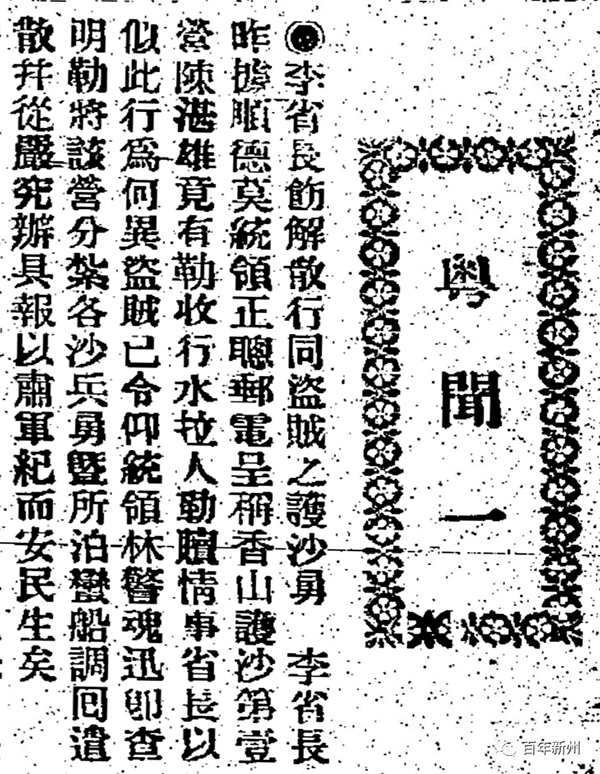 粵聞一
◉李省長飭解散行同盜賊之護沙勇 李省長
昨據順德莫統領正聰郵電呈稱香山護沙第壹
營陳湛雄竟有勒收行水拉人勒贖情事省長以
似此行爲何異盜賊已令仰統領林警魂迅卽查
明勒將該營分紮各沙兵勇暨所泊蠻船調回遣
散幷從嚴究辦具報以肅軍紀而安民生矣
百年新州